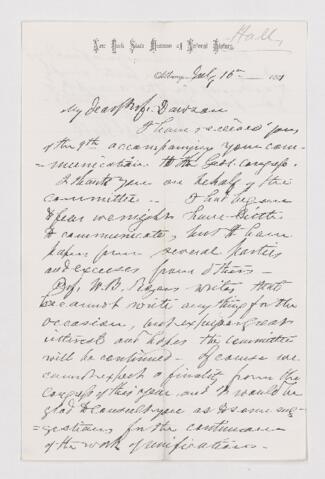 Hall,
New York State Museum of Natural History,
Albany, July 16th 1881
My dear Prof. Dawson
I have received yours
of the 9th accompanying your com-
=munication to the Geol. Congress.
I thank you on behalf of the
committee. I had begun
to fear we might have little
to communicate, but I have
papers from several parties
and excuses from others—
Prof. W. B. Rogers writes that
he cannot write anything for the
occasion, but expresses great
interest and hopes the Committee
will be continued— Of course we
cannot expect a finality from the
Congress of this year and I would be
glad to consult you as to some sug-
=gestions for the continuance
of the work of unification.